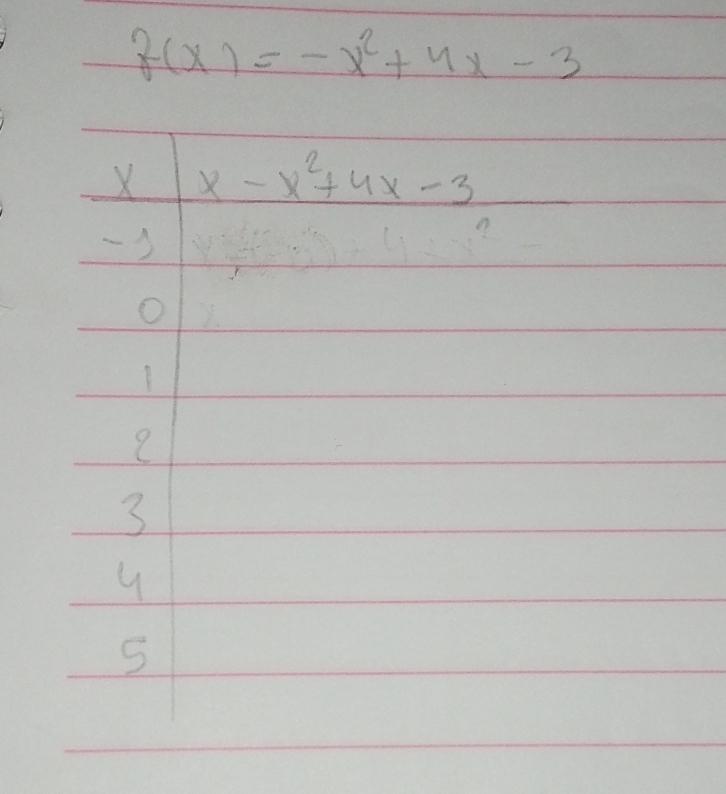 f(x) = -x² + 4x - 3
x | x - x² + 4x - 3
-1
0
1
2
3
4
5